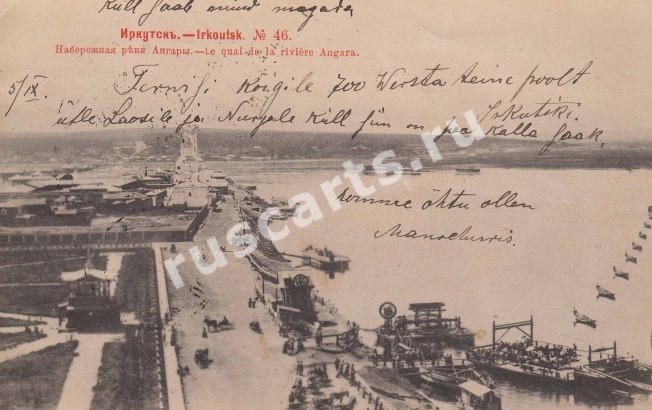 Kull saab minud magada
Иркутскъ.—Irkoutsk. № 46.
Набережная рѣки Ангары.—Le quai de la rivière Angara.
5/IX Tervisi Kõigile 700 Wersta teine poolt Irkutski.
ütle Laosile ja Nurgale Küll siin on hea Kalla saak,
homme õhtu ollen
Manschuris.
ruscarts.ru